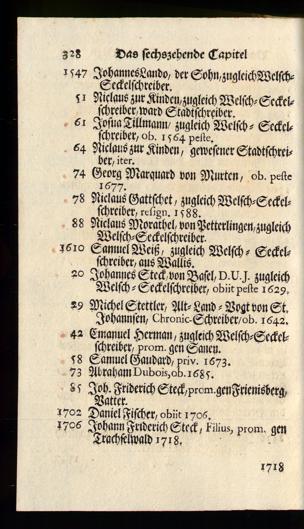 328 Das sechszehende Capitel
1547 Johannes Lando, der Sohn, zugleich Welsch-
Seckelschreiber.
51 Niclaus zur Kinden, zugleich Welsch-Seckel-
schreiber, ward Stadtschreiber.
61 Josua Tillmann, zugleich Welsch-Seckel-
schreiber, ob. 1564 peste.
64 Niclaus zur Kinden, gewesener Stadtschrei-
ber, iter.
74 Georg Marquard von Murten, ob. peste
1677.
78 Niclaus Gattschet, zugleich Welsch-Seckel-
schreiber, resign. 1588.
88 Niclaus Morathel, von Petterlingen, zugleich
Welsch-Seckelschreiber.
1610 Samuel Weiß, zugleich Welsch-Seckel-
schreiber, aus Wallis.
20 Johannes Steck von Basel, D.U.J. zugleich
Welsch-Seckelschreiber, obiit peste 1629.
29 Michel Stettler, Alt-Land-Vogt von St.
Johannsen, Chronic-Schreiber, ob. 1642.
42 Emanuel Herman, zugleich Welsch-Seckel-
schreiber, prom. gen Sanen.
58 Samuel Gaudard, priv. 1673.
73 Abraham Dubois, ob. 1685.
85 Joh. Friderich Steck, prom. gen Frienisberg,
Vatter.
1702 Daniel Fischer, obiit 1706.
1706 Johann Friderich Steck, Filius, prom. gen
Trachselwald 1718.
1718